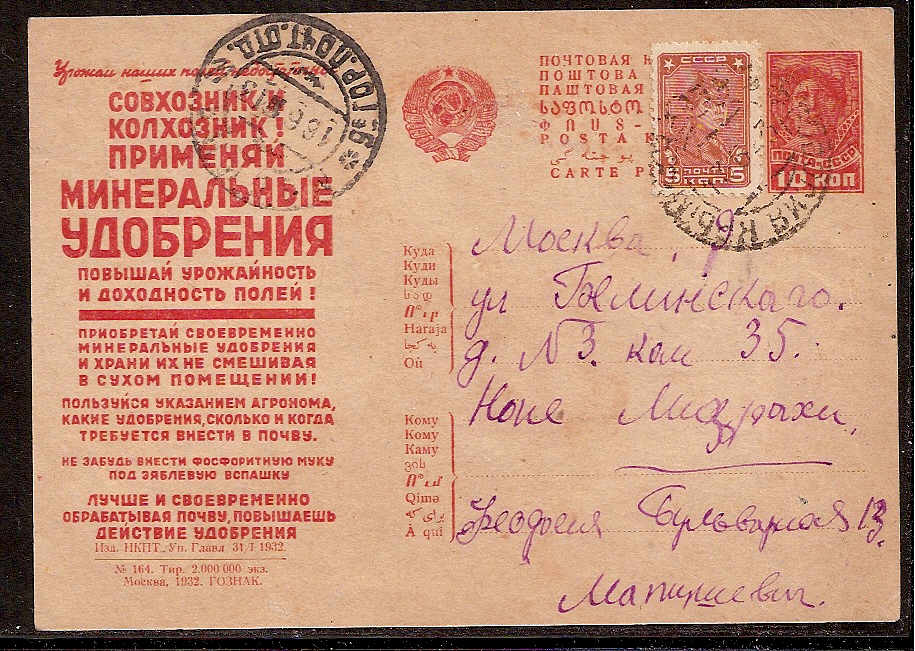 Урожаи наших полей
СОВХОЗНИК И
КОЛХОЗНИК!
ПРИМЕНЯЙ
МИНЕРАЛЬНЫЕ
УДОБРЕНИЯ
ПОВЫШАЙ УРОЖАЙНОСТЬ
И ДОХОДНОСТЬ ПОЛЕЙ!
ПРИОБРЕТАЙ СВОЕВРЕМЕННО
МИНЕРАЛЬНЫЕ УДОБРЕНИЯ
И ХРАНИ ИХ НЕ СМЕШИВАЯ
В СУХОМ ПОМЕЩЕНИИ!
ПОЛЬЗУЙСЯ УКАЗАНИЕМ АГРОНОМА,
КАКИЕ УДОБРЕНИЯ, СКОЛЬКО И КОГДА
ТРЕБУЕТСЯ ВНЕСТИ В ПОЧВУ.
НЕ ЗАБУДЬ ВНЕСТИ ФОСФОРИТНУЮ МУКУ
ПОД ЗЯБЛЕВУЮ ВСПАШКУ
ЛУЧШЕ И СВОЕВРЕМЕННО
ОБРАБАТЫВАЯ ПОЧВУ, ПОВЫШАЕШЬ
ДЕЙСТВИЕ УДОБРЕНИЯ
Изд. НКПТ. Уп. Главл 31/I 1932.
№ 164. Тир. 2.000 000 экз.
Москва, 1932. ГОЗНАК.
ГОР.ПОЧТ.ОТД.
ПОЧТОВАЯ К
ПОШТОВА
ПАШТОВАЯ
ՓՈՍ-
POSTA K
CARTE P
СССР
ПОЧТА
5 КОП. 5
ПОЧТА СССР
10 КОП
Куда
Куди
Куды
სად
Ո՞ւր
Haraja
Où
Кому
Кому
Каму
ვის
Ո՞ւմ
Qimə
À qui
Москва, 9
ул
д. №3. ком 35.
Ноне
Феодосия Бульварная 13.